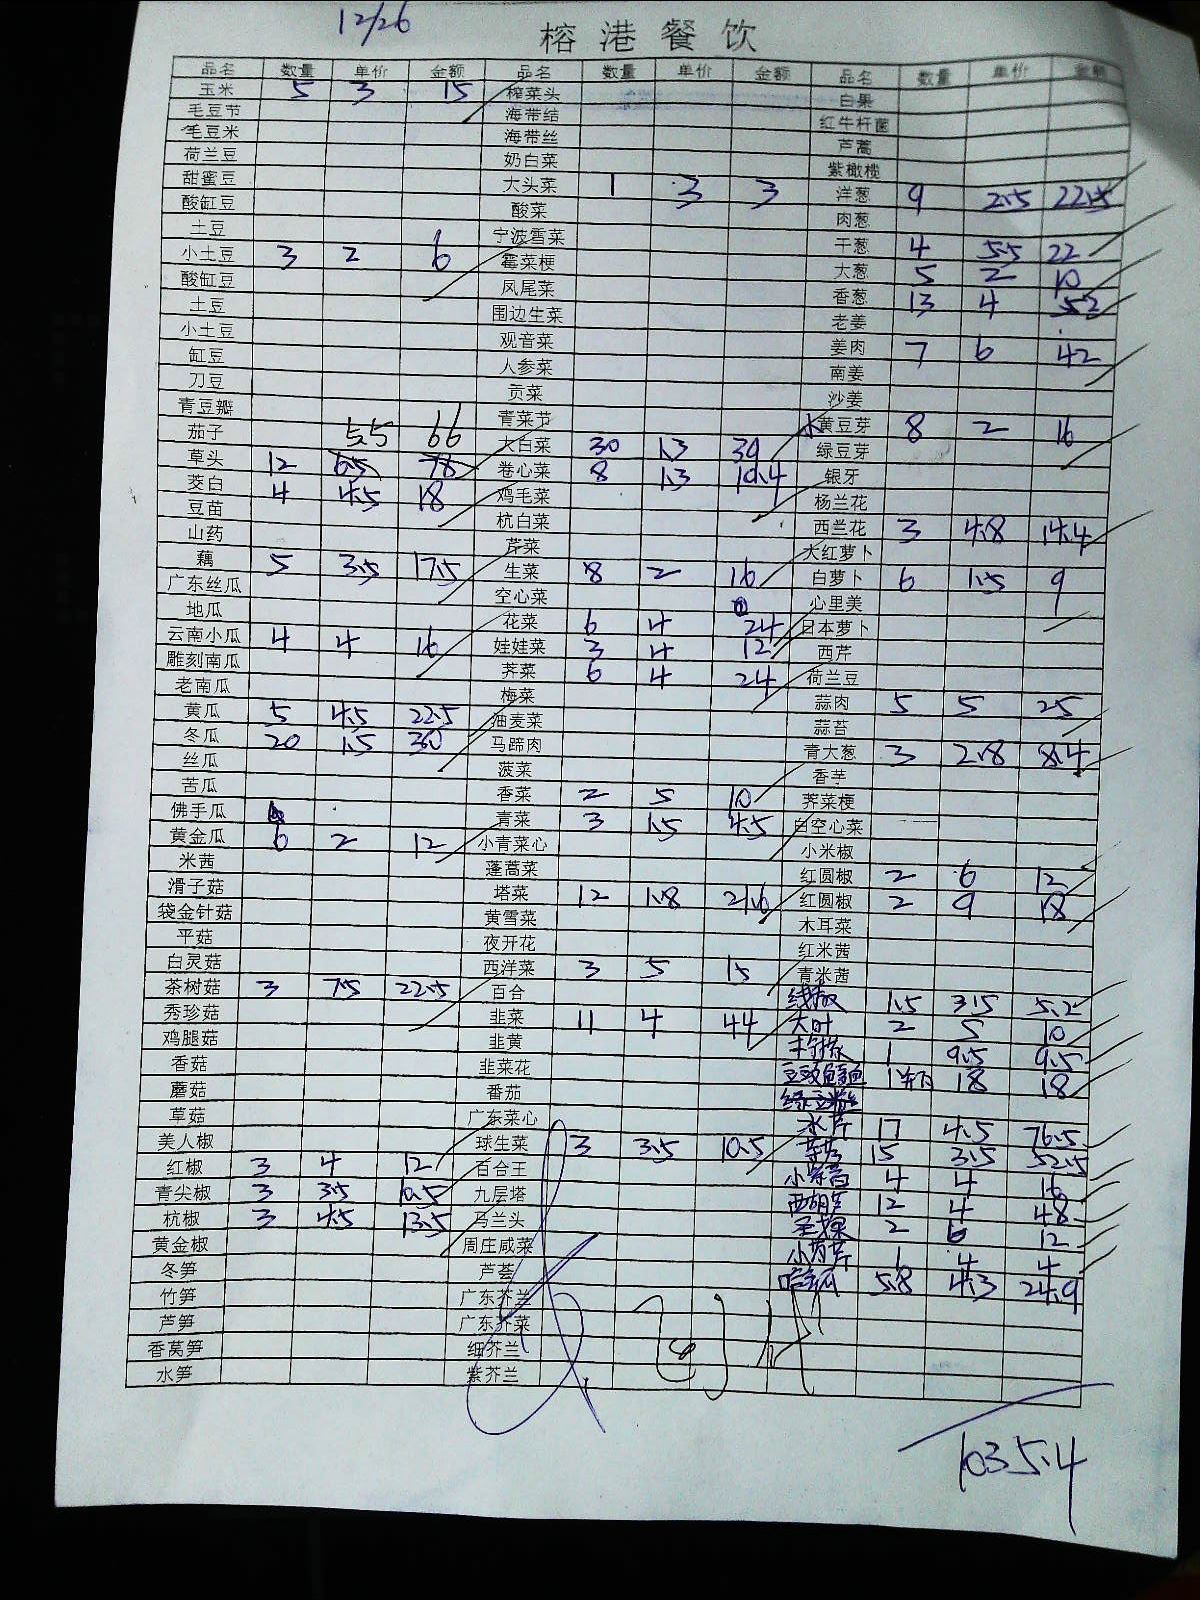 12/26
榕港餐饮
品名 数量 单价 金额 品名 数量 单价 金额 品名 数量 单价 金额
玉米 5 3 15 榨菜头 白果
毛豆节 海带结 红牛杆菌
毛豆米 海带丝 芦蒿
荷兰豆 奶白菜 紫橄榄
甜蜜豆 大头菜 1 3 3 洋葱 9 2.5 22.5
酸缸豆 酸菜 肉葱
土豆 宁波雪菜 干葱 4 5.5 22
小土豆 3 2 6 霉菜梗 大葱 5 2 10
酸缸豆 凤尾菜 香葱 13 4 52
土豆 围边生菜 老姜
小土豆 观音菜 姜肉 7 6 42
缸豆 人参菜 南姜
刀豆 贡菜 沙姜
青豆瓣 青菜节 黄豆芽 8 2 16
茄子 5.5 66 大白菜 30 1.3 39 绿豆芽
草头 12 6.5 78 卷心菜 8 1.3 10.4 银牙
茭白 4 4.5 18 鸡毛菜 杨兰花
豆苗 杭白菜 西兰花 3 4.8 14.4
山药 芹菜 大红萝卜
藕 5 3.5 17.5 生菜 8 2 16 白萝卜 6 1.5 9
广东丝瓜 空心菜 心里美
地瓜 花菜 6 4 24 日本萝卜
云南小瓜 4 4 16 娃娃菜 3 4 12 西芹
雕刻南瓜 荠菜 6 4 24 荷兰豆
老南瓜 梅菜 蒜肉 5 5 25
黄瓜 5 4.5 22.5 油麦菜 蒜苔
冬瓜 20 1.5 30 马蹄肉 青大葱 3 2.8 8.4
丝瓜 菠菜 香芋
苦瓜 香菜 2 5 10 荠菜梗
佛手瓜 青菜 3 1.5 4.5 白空心菜
黄金瓜 6 2 12 小青菜心 小米椒
米茜 蓬蒿菜 红圆椒 2 6 12
滑子菇 塔菜 12 1.8 21.6 红圆椒 2 9 18
袋金针菇 黄雪菜 木耳菜
平菇 夜开花 红米茜
白灵菇 西洋菜 3 5 15 青米茜
茶树菇 3 7.5 22.5 百合 线椒 1.5 3.5 5.2
秀珍菇 韭菜 11 4 44 大叶 2 5 10
鸡腿菇 韭黄 1 9.5 9.5
香菇 韭菜花 18 18
蘑菇 番茄
草菇 广东菜心 水芹 17 4.5 76.5
美人椒 球生菜 3 3.5 10.5 15 3.5 52.5
红椒 3 4 12 百合王 4 4 16
青尖椒 3 3.5 10.5 九层塔 12 4 48
杭椒 3 4.5 13.5 马兰头 2 6 12
黄金椒 周庄咸菜 1 4 4
冬笋 芦荟 哈密瓜 5.8 4.3 24.9
竹笋 广东芥兰
芦笋 广东芥菜
香莴笋 细芥兰
水笋 紫芥兰
1035.4